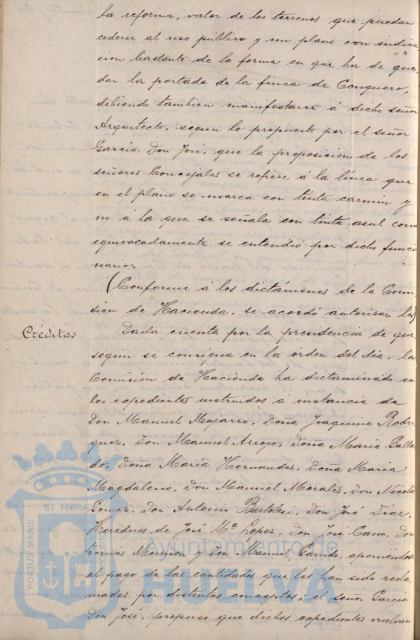 la reforma, valor de los terrenos que puedan
cederse al uso público y un plano con indica
cion bastante de la forma en que ha de que
dar la portada de la finca de Conquero,
debiendo tambien manifestarse á dicho señor
Arquitecto, segun lo propuesto por el señor
García Don José, que la proposicion de los
señores Concejales se refiere á la línea que
en el plano se marca con tinta carmin y
no á la que se señala con tinta azul como
equivocadamente se entendió por dicho funcio
nario.
(Conforme á los dictámenes de la Comi
sion de Hacienda, se acordó autorizar las)
Créditos
Dada cuenta por la presidencia de que,
segun se consigna en la órden del dia, la
Comision de Hacienda ha dictaminado en
los expedientes instruidos á instancia de
Don Manuel Doña Joaquina Rodri
guez, Don Manuel Arroyo, Doña María Galla
do, Doña María Hernandez, Doña María
Magdaleno, Don Manuel Morales, Don Nicolás
Gomez, Don Antonio Don José Diaz,
Herederos de José Mª Lopez, Don José Cano, Don
Tomas y Don Manuel
el pago de las cantidades que les han sido recla
madas por distintos conceptos; el señor García
Don José, propuso que dichos expedientes vuelvan
PORTUS MARIS
ET TERRAE
Ayuntamiento de
HUELVA